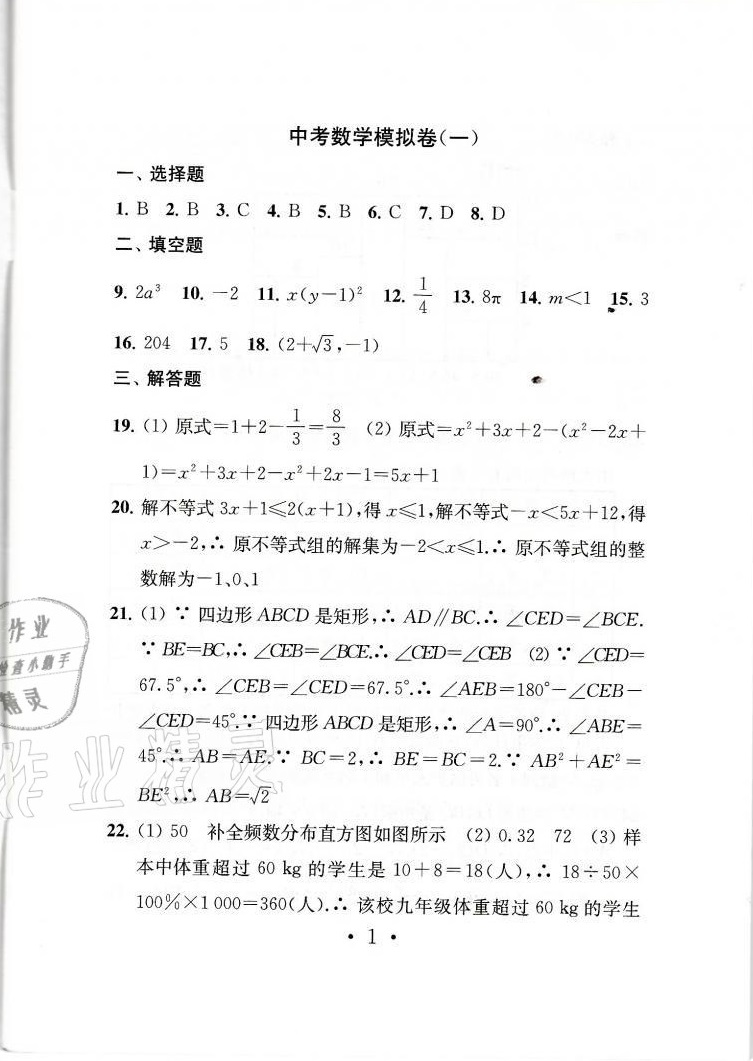 中考数学模拟卷(一)
一、选择题
1. B 2. B 3. C 4. B 5. B 6. C 7. D 8. D
二、填空题
9. 2a³ 10. －2 11. x(y－1)² 12. 1/4 13. 8π 14. m＜1 15. 3
16. 204 17. 5 18. (2＋√3,－1)
三、解答题
19. (1) 原式＝1＋2－1/3＝8/3 (2) 原式＝x²＋3x＋2－(x²－2x＋
1)＝x²＋3x＋2－x²＋2x－1＝5x＋1
20. 解不等式 3x＋1≤2(x＋1),得 x≤1,解不等式－x＜5x＋12,得
x＞－2,∴ 原不等式组的解集为－2＜x≤1.∴ 原不等式组的整
数解为－1、0、1
21. (1) ∵ 四边形 ABCD 是矩形,∴ AD∥BC.∴ ∠CED＝∠BCE.
∵ BE＝BC,∴ ∠CEB＝∠BCE.∴ ∠CED＝∠CEB (2) ∵ ∠CED＝
67.5°,∴ ∠CEB＝∠CED＝67.5°.∴ ∠AEB＝180°－∠CEB－
∠CED＝45°.∵ 四边形 ABCD 是矩形,∴ ∠A＝90°.∴ ∠ABE＝
45°.∴ AB＝AE.∵ BC＝2,∴ BE＝BC＝2.∵ AB²＋AE²＝
BE²,∴ AB＝√2
22. (1) 50 补全频数分布直方图如图所示 (2) 0.32 72 (3) 样
本中体重超过 60 kg 的学生是 10＋8＝18(人),∴ 18÷50×
100%×1 000＝360(人).∴ 该校九年级体重超过 60 kg 的学生
• 1 •
作业
检查小助手
精灵
作业精灵